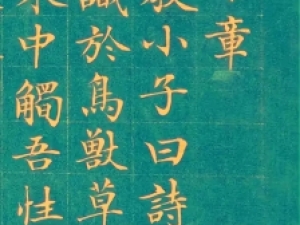 章
小子曰詩
識於鳥獸草
中觸吾性